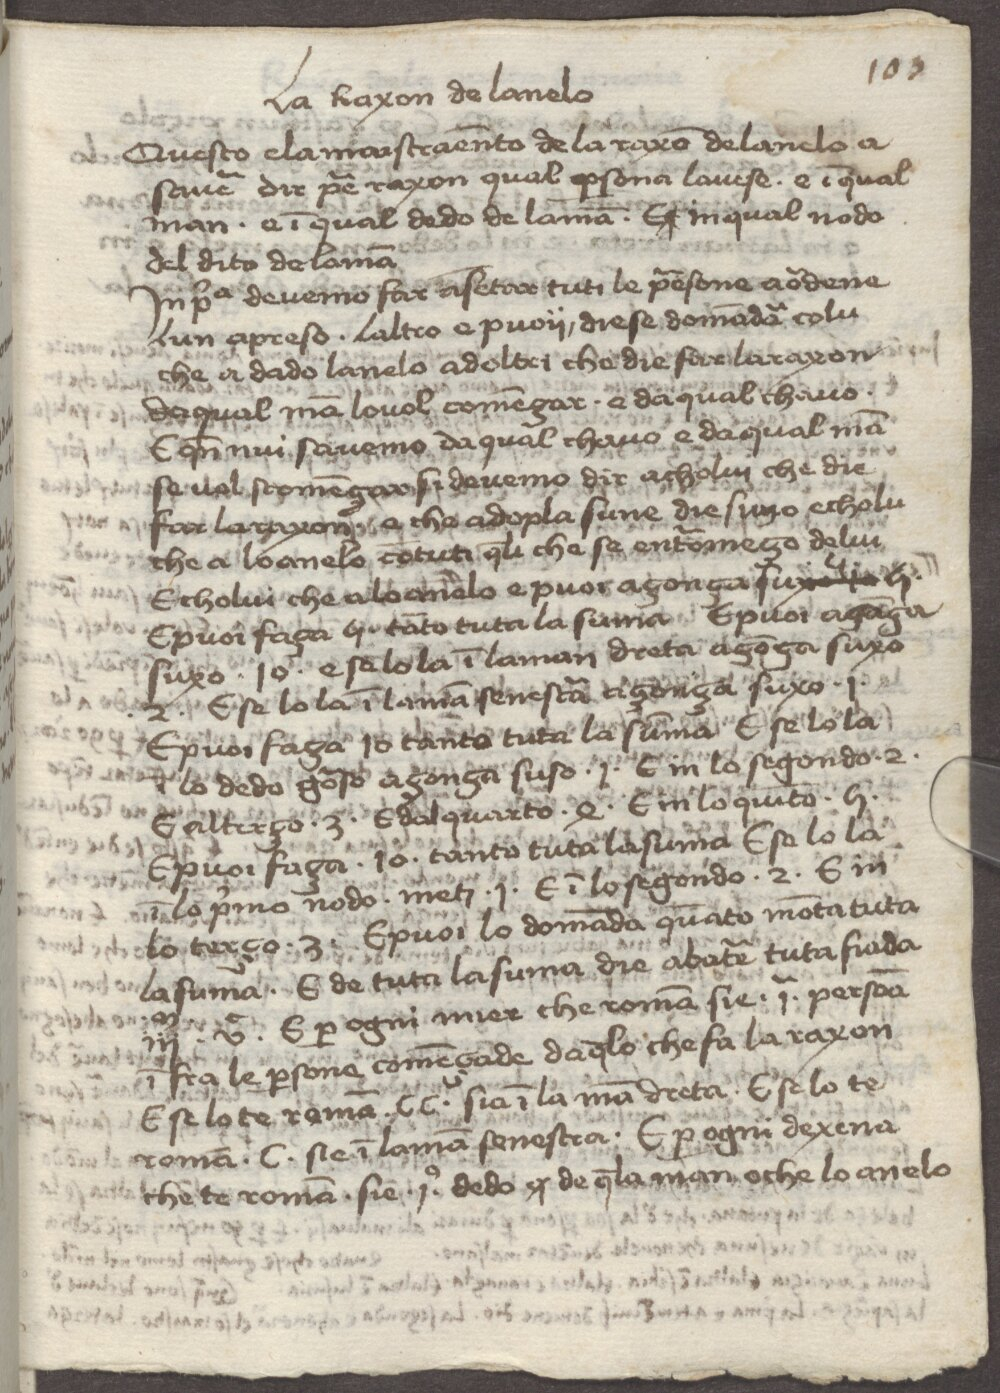 103
La raxon de lanelo
Questo elamaistraēnto de la raxō delanelo a
savē dir p̄e raxon qual p̱sona lavese · e ī qual
man · e ī qual dedo de lamā · E inqual nodo
del dito de lamā
In pᵃ devemo far asetar tuti le p̄esone aōdene
Lun apreso · Laltro e puoij, diese domādā colu
che a dado lanelo adoltri che die far laraxon
daqual mā lovol comēgar · e da qual chavo ·
E qn̄ nui savemo da qual chavo e da qual mā
se vol scomēgar si devemo dir acholui che die
far laraxon, e che adopla sune die suzo echolu
che a loanelo cōtuti q̄li che se entromego delui
Echolui che aloanelo e puoi agonga suxo 5 ·
Epuoi faga 5 · tāto tuta la suma Epuoi agāga
suxo · 10 · e selo la ī laman dreta agōga suxo
· 2 · E se lo la ī lamā senestrā agonga suxo · 1 ·
Epuoi faga 10 tanto tuta la sūma E se lo la
ī lo dedo grōso agonga suso · 1 · E in lo segondo · 2 ·
E alterço · 3 · Edalquarto · 4 · E in lo quīto · 5 ·
Epuoi faga · 10 · tanto tuta lasuma E se lo la
ī lo p̄mo nodo · metj · 1 · E ī lo segondo · 2 · E in
lo terço · 3 · Epuoi lo domāda quāto mōta tuta
lasumā · E de tuta lasuma die abatē tuta fiada
iijᵐ · v̄ᶜ · E p̱ ogni mier che romā sie · ī · persoā
ī fra le p̱sone comēçade daq̄lo che fa la raxon
E se lo te romā · CC · sie ī la mā dreta · E se lo te
romā · C · sie ī lamā senestra · E p̱ ogni dexena
che te romā · sie · j° · dedo de q̄la man oche lo anelo